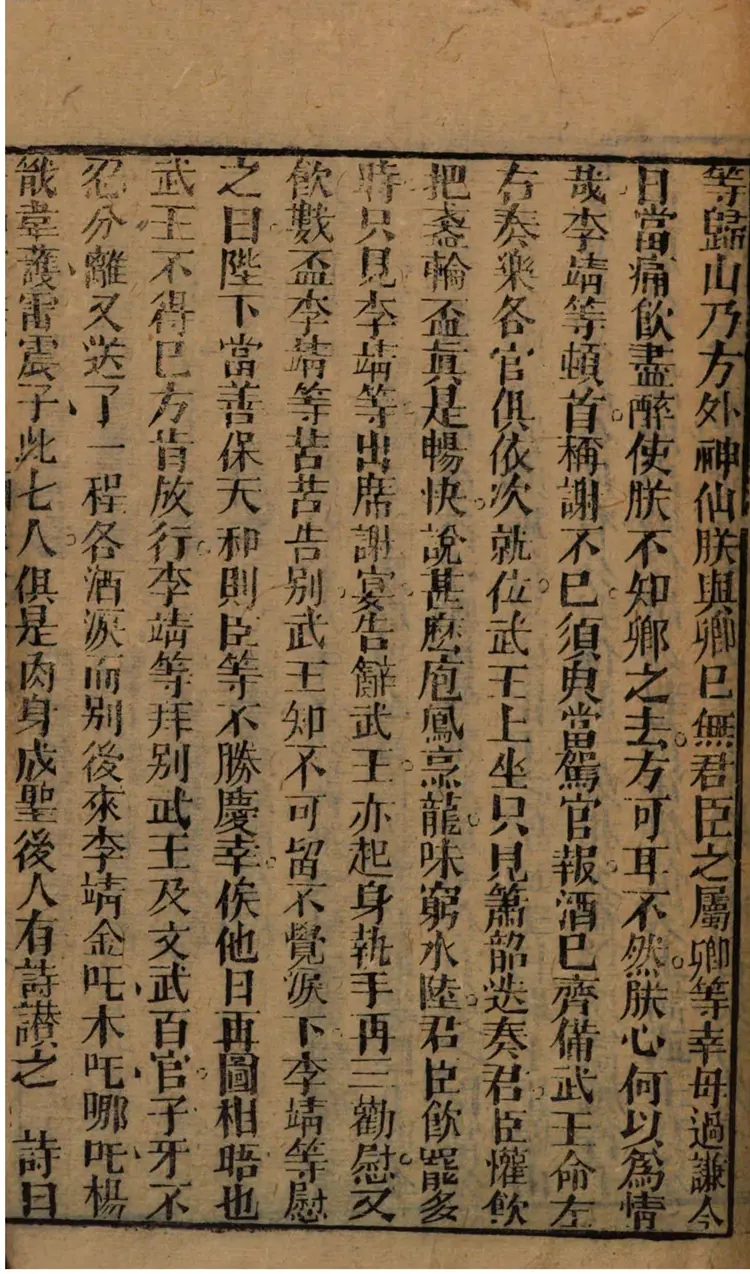 等歸山乃方外神仙朕與卿已無君臣之屬卿等幸毋過謙今
日當痛飲盡醉使朕不知卿之去方可耳不然朕心何以為情
哉李靖等頓首稱謝不已須臾當駕官報酒已齊備武王命左
右奏樂各官俱依次就位武王上坐只見簫韶迭奏君臣懽飲
把盞輪盃真是暢快說甚麽庖鳳烹龍味窮水陸君臣飲罷多
時只見李靖等出席謝宴告辭武王亦起身執手再三勸慰又
飲數盃李靖等苦苦告别武王知不可留不覺淚下李靖等慰
之曰陛下當善保天和則臣等不勝慶幸俟他日再圖相晤也
武王不得已方肯放行李靖等拜别武王及文武百官子牙不
忍分離又送了一程各洒淚而别後來李靖金吒木吒哪吒楊
戩韋護雷震子此七人俱是肉身成聖後人有詩讃之　詩曰